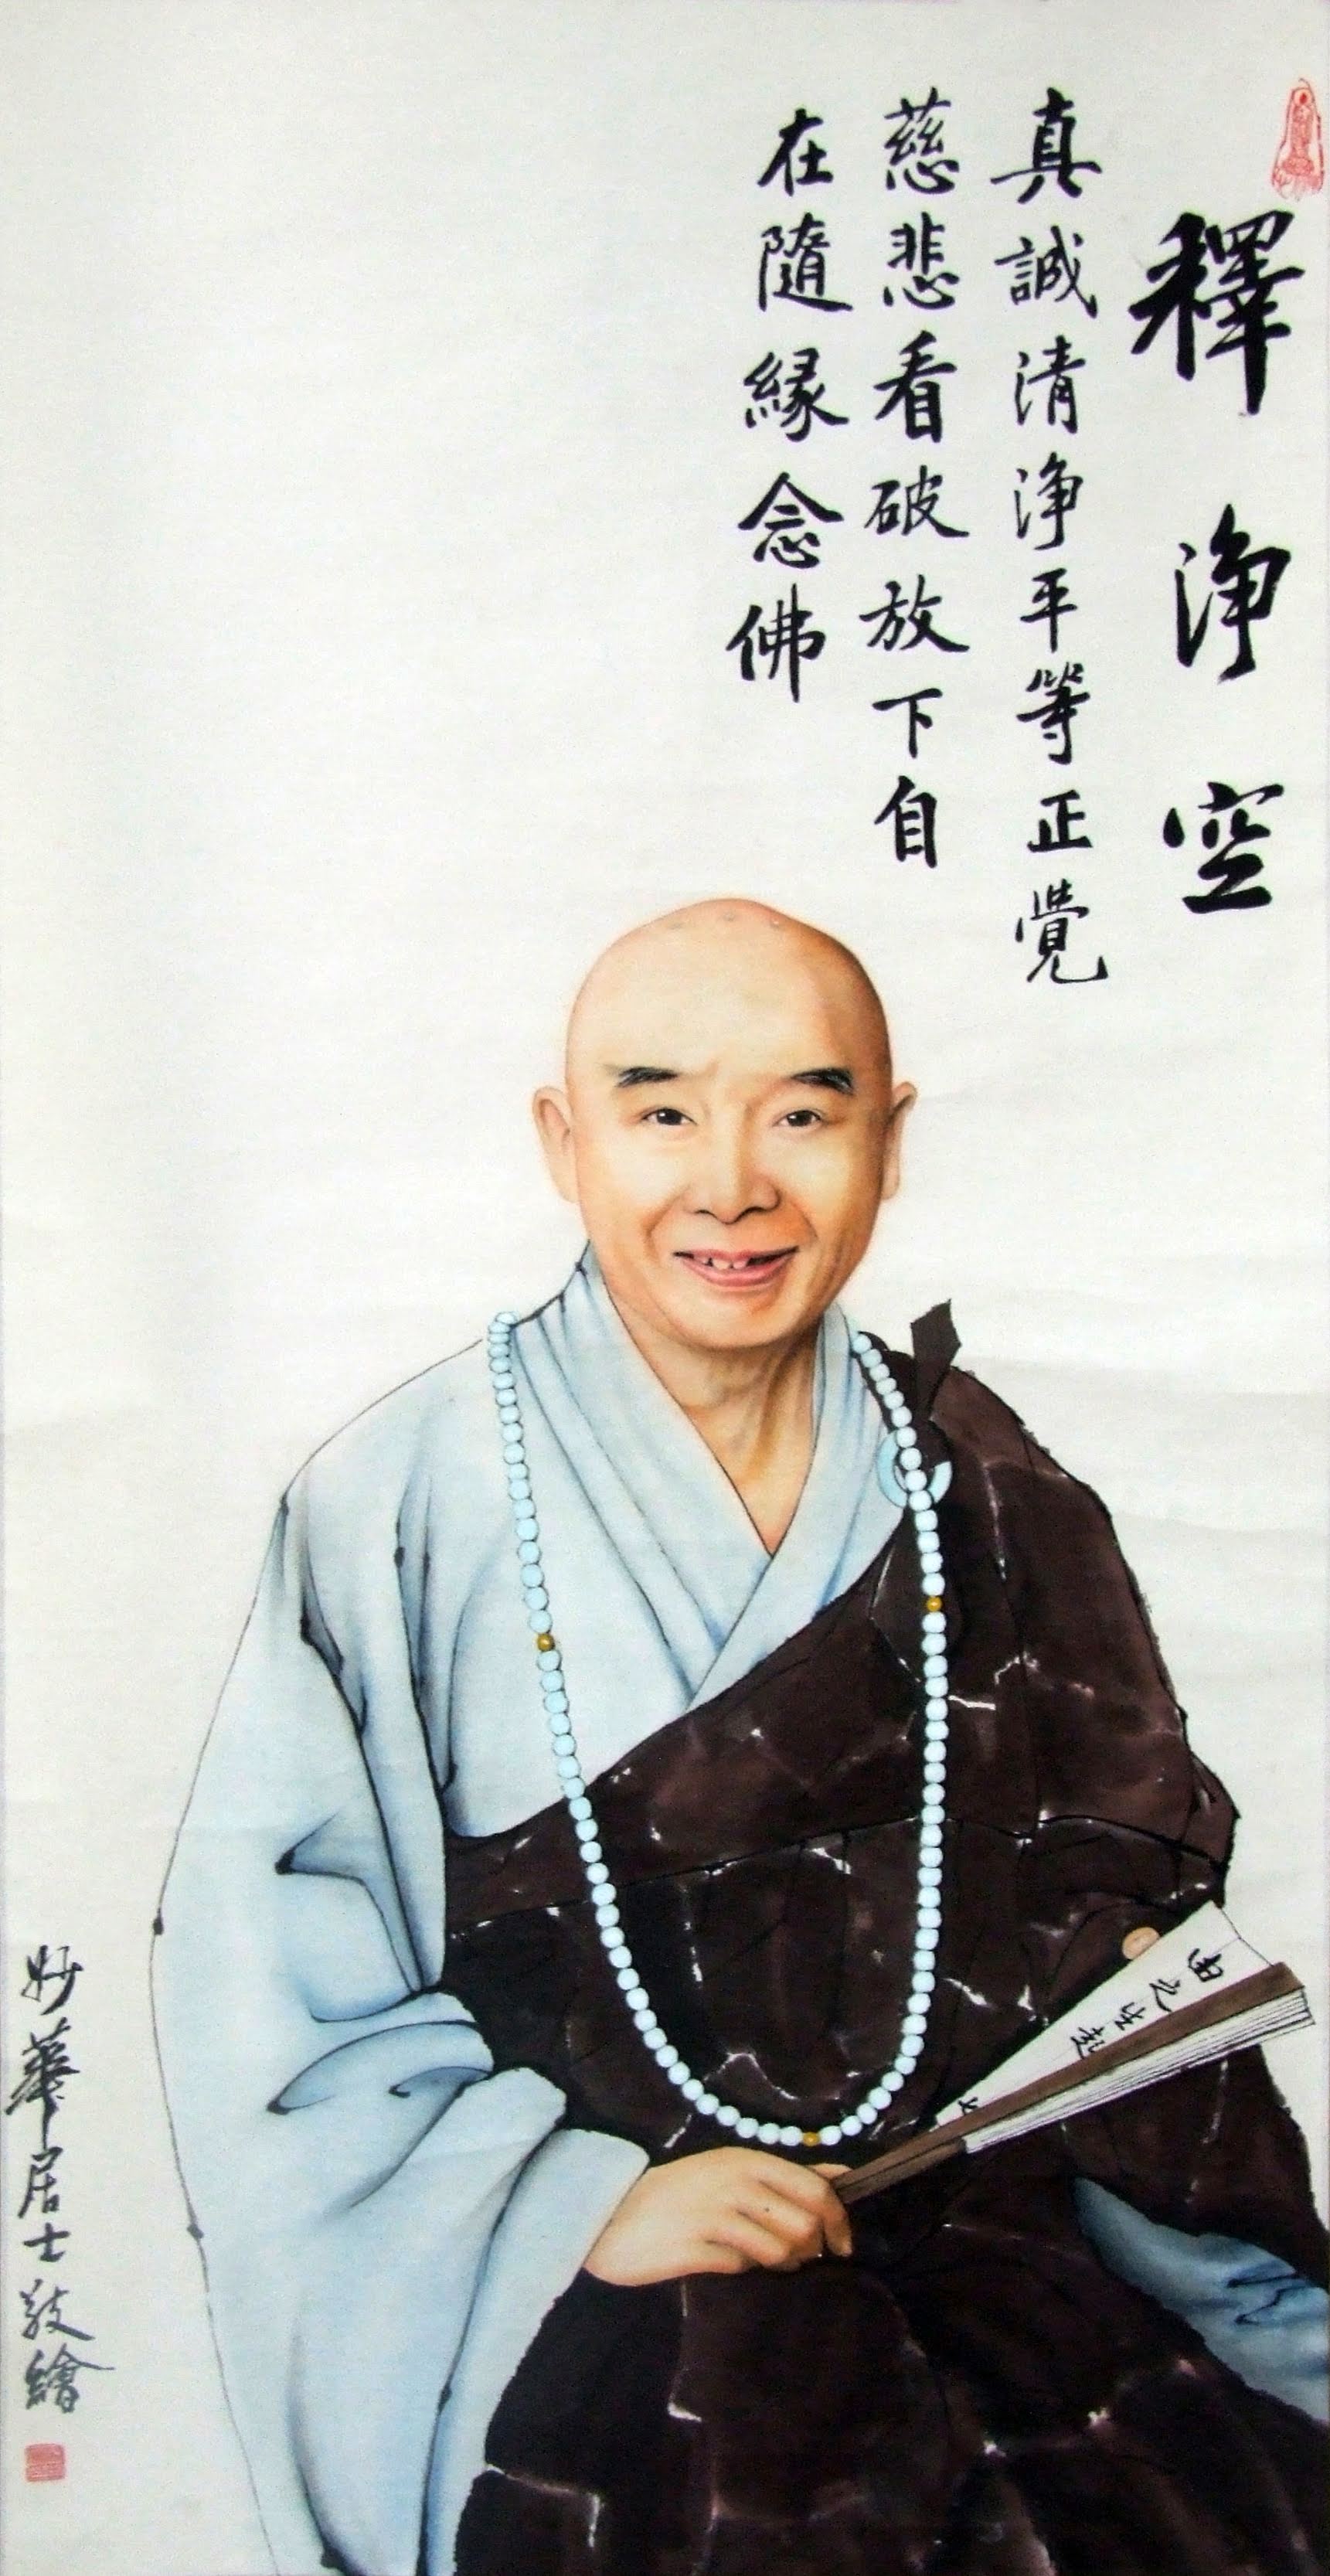 釋淨空
真誠清淨平等正覺
慈悲看破放下自
在隨緣念佛
由之生起
妙華居士敬繪